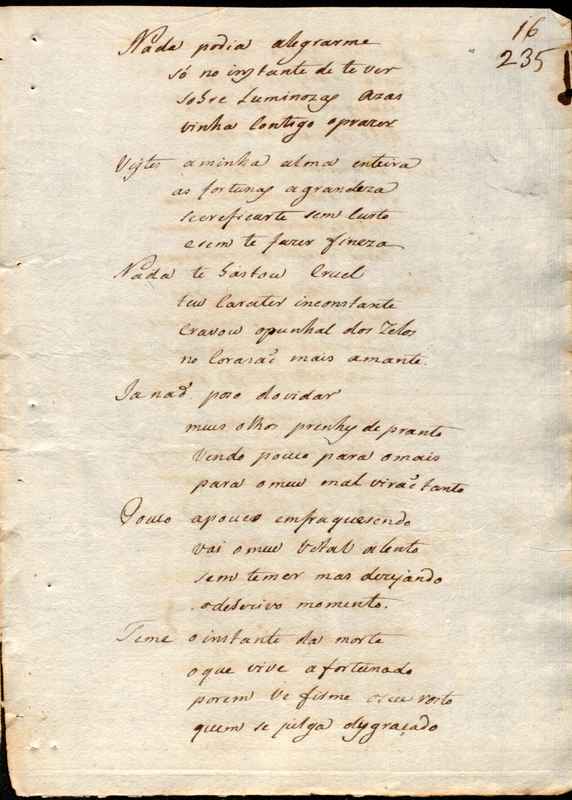 16
235
Nada podia alegrarme
só no instante de te ver
sobre Luminozas Azas
vinha Contigo oprazer
Vistes aminha alma enteira
as fortunas agrandeza
screficarte sem Custo
esem te fazer fineza
Nada te bastou Cruel
teu Carater inconstante
Cravou opunhal dos Zelos
no Corasaõ mais amante.
Ja naõ poso duvidar
meus olhos prenhes de pranto
Vendo pouco para omais
para omeu mal viraõ tanto
Pouco apouco emfraquesendo
vai omeu Vital alento
sem temer mas dezejando
odeserivo momento.
Teme oinstante da morte
oque vive afortunado
porem Ve firme oseu rosto
quem se julga desgraçado